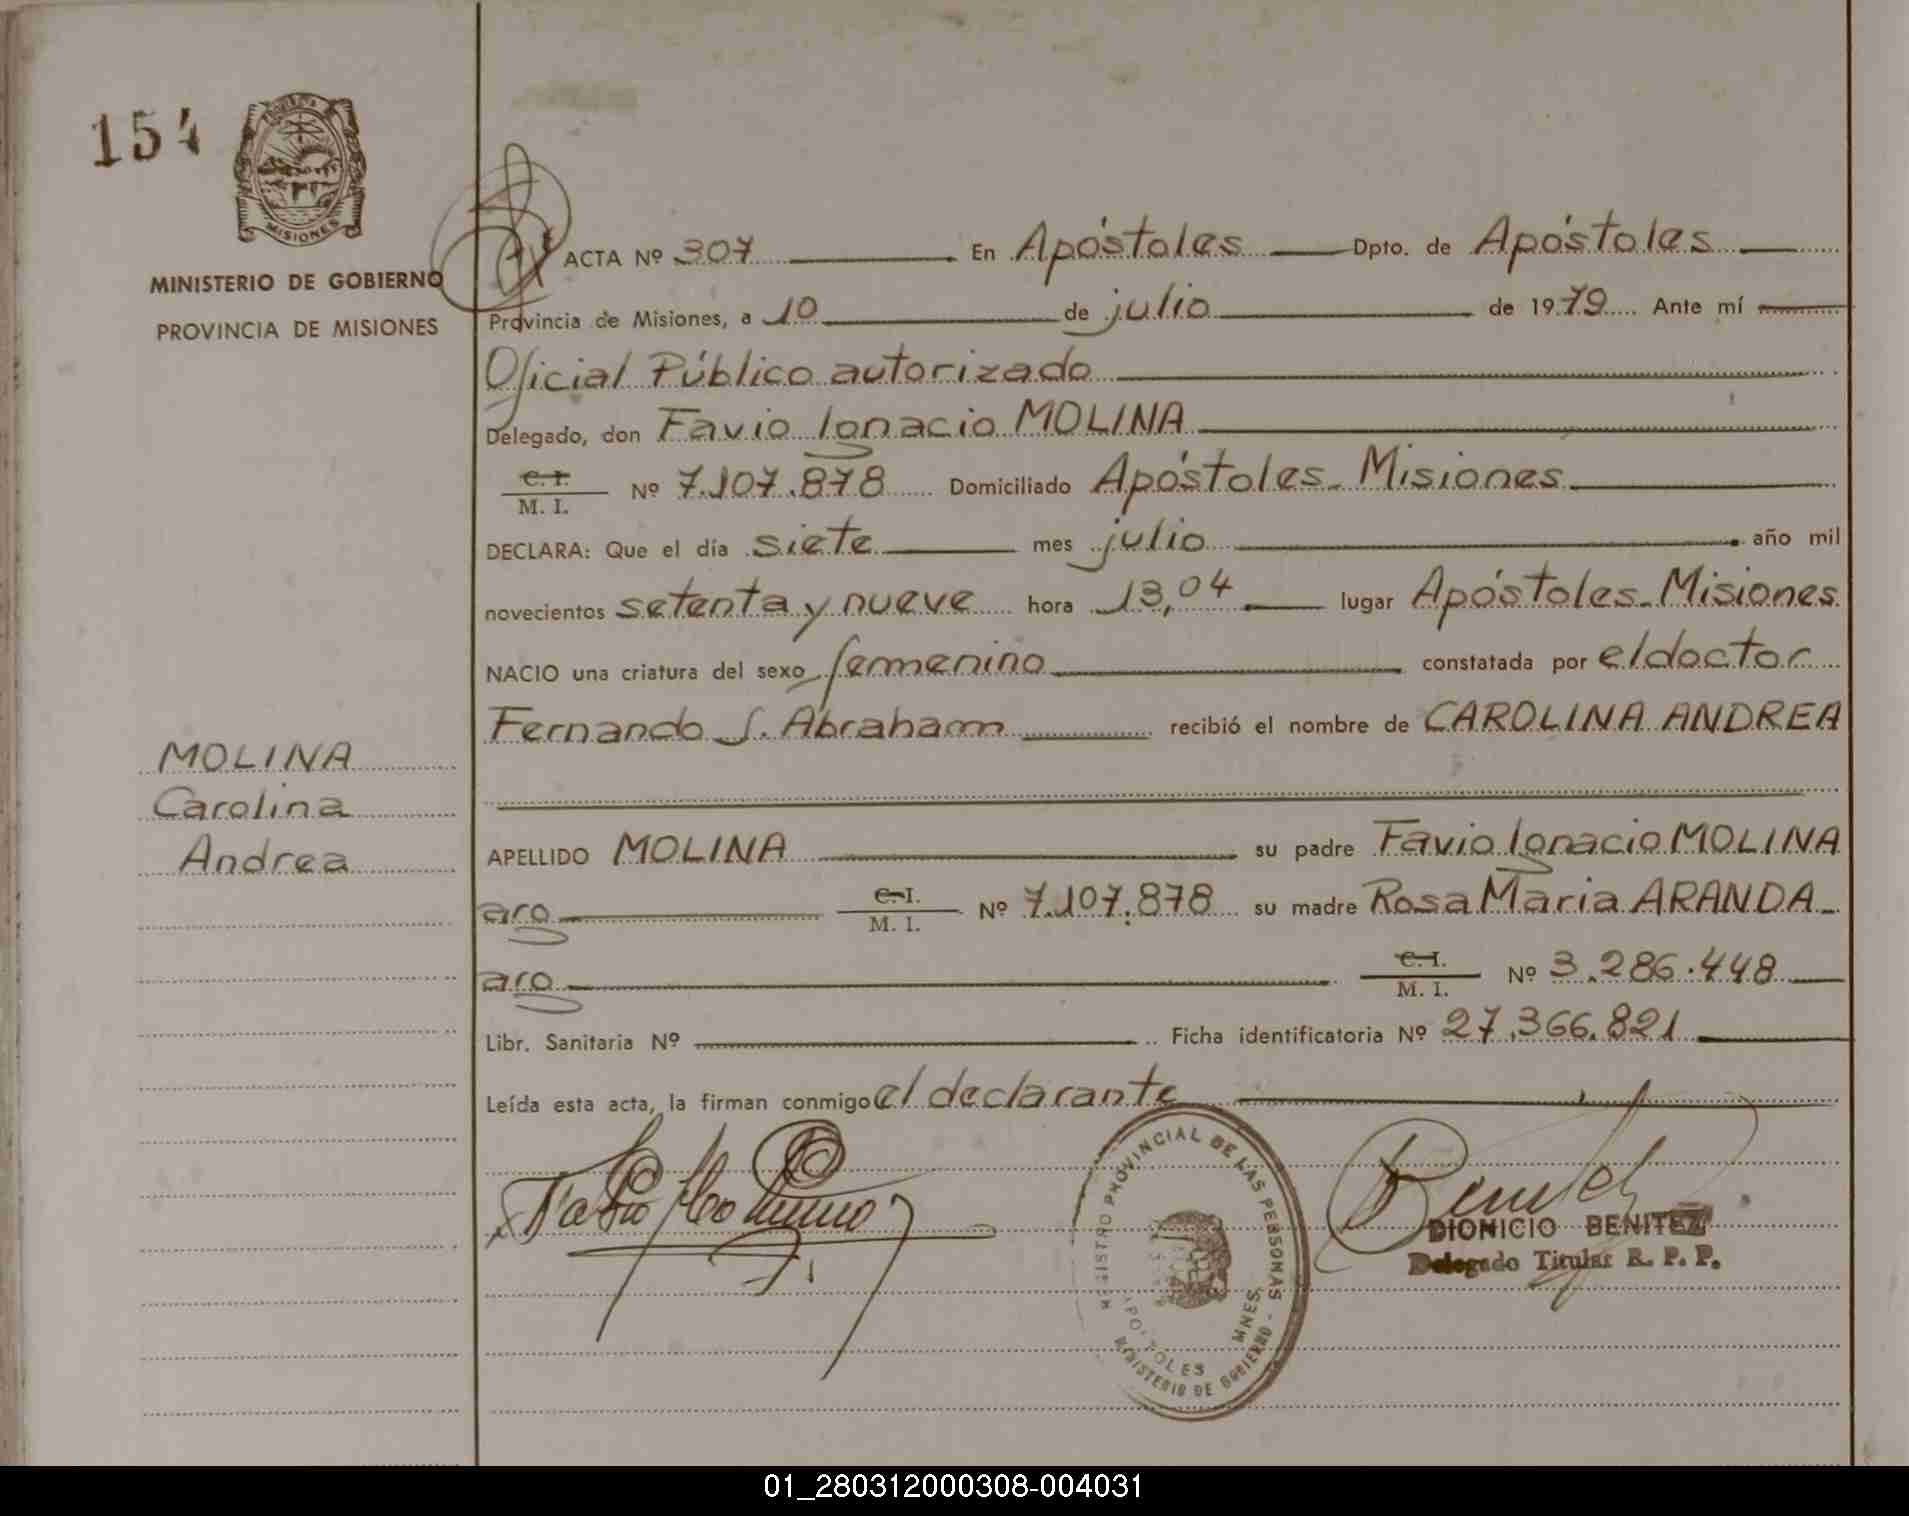 154
MISIONES
MINISTERIO DE GOBIERNO
PROVINCIA DE MISIONES
ACTA Nº 307 En Apóstoles Dpto. de Apóstoles
Provincia de Misiones, a 10 de julio de 1979 Ante mí
Oficial Público autorizado
Delegado, don Favio Ignacio MOLINA
C. I.
M. I. Nº 7.107.878 Domiciliado Apóstoles - Misiones
DECLARA: Que el día siete mes julio año mil
novecientos setenta y nueve hora 13,04 lugar Apóstoles - Misiones
NACIO una criatura del sexo femenino constatada por el doctor
Fernando J. Abraham recibió el nombre de CAROLINA ANDREA
MOLINA
Carolina
Andrea
APELLIDO MOLINA su padre Favio Ignacio MOLINA
arg C. I.
M. I. Nº 7.107.878 su madre Rosa Maria ARANDA
arg C. I.
M. I. Nº 3.286.448
Libr. Sanitaria Nº Ficha identificatoria Nº 27.366.821
Leída esta acta, la firman conmigo el declarante
REGISTRO PROVINCIAL DE LAS PERSONAS
APOSTOLES MNES.
MINISTERIO DE GOBIERNO
DIONICIO BENITEZ
Delegado Titular R. P. P.
01_280312000308-004031